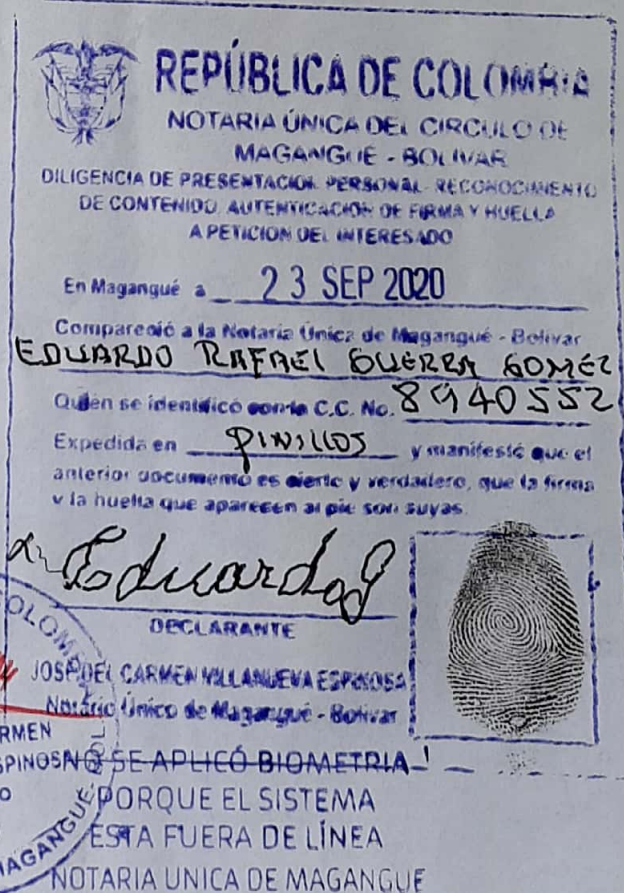 REPÚBLICA DE COLOMBIA
NOTARIA ÚNICA DEL CIRCULO DE
MAGANGUÉ - BOLIVAR
DILIGENCIA DE PRESENTACIÓN PERSONAL RECONOCIMIENTO
DE CONTENIDO, AUTENTICACIÓN DE FIRMA Y HUELLA
A PETICION DEL INTERESADO
En Magangué a 23 SEP 2020
Compareció a la Notaría Única de Magangué - Bolívar
EDUARDO RAFAEL GUERRA GOMEZ
Quien se identificó con la C.C. No. 8940552
Expedida en PINILLOS y manifestó que el
anterior documento es cierto y verdadero, que la firma
y la huella que aparecen al pie son suyas.
Eduardo G
DECLARANTE
COLOMB
JOSE DEL CARMEN VILLANUEVA ESPINOSA
Notario Único de Magangué - Bolívar
RMEN
SPINOSA
O
MAGANGUÉ
NO SE APLICÓ BIOMETRIA
PORQUE EL SISTEMA
ESTA FUERA DE LÍNEA
NOTARIA UNICA DE MAGANGUE